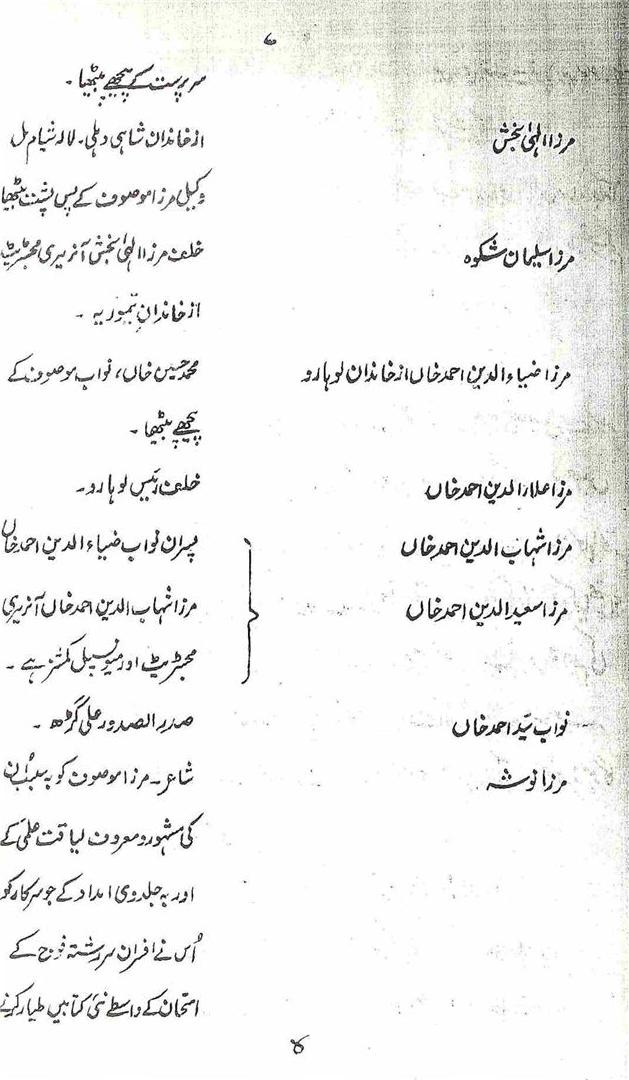 ۷
سرپرست کے پیچھے بیٹھیا۔
مرزا الٰہی بخش از خاندان شاہی دہلی۔ لالہ شیام مل
وکیل مرزا موصوف کے پس پشت بیٹھیا
مرزا سلیمان شکوہ خلف مرزا الٰہی بخش آنریری مجسٹریٹ
از خاندان تیموریہ۔
مرزا ضیاء الدین احمد خاں از خاندان لوہارو محمد حسین خاں، نواب موصوف کے
پیچھے بیٹھا۔
مرزا علاء الدین احمد خاں خلف رئیس لوہارو۔
مرزا شہاب الدین احمد خاں پسران نواب ضیاء الدین احمد خاں
مرزا سعید الدین احمد خاں مرزا شہاب الدین احمد خاں آنریری
مجسٹریٹ اور میونسپل کمشنر ہے۔
نواب سید احمد خاں صدر الصدور علی گڑھ۔
مرزا نوشہ شاعر۔ مرزا موصوف کو بہ سبب اُن
کی مشہور و معروف لیاقت علمی کے
اور بہ جلدوی امداد کے جو سرکار کو
اُس نے افسران سررشتہ فوج کے
امتحان کے واسطے نئی کتابیں طیار کرنے